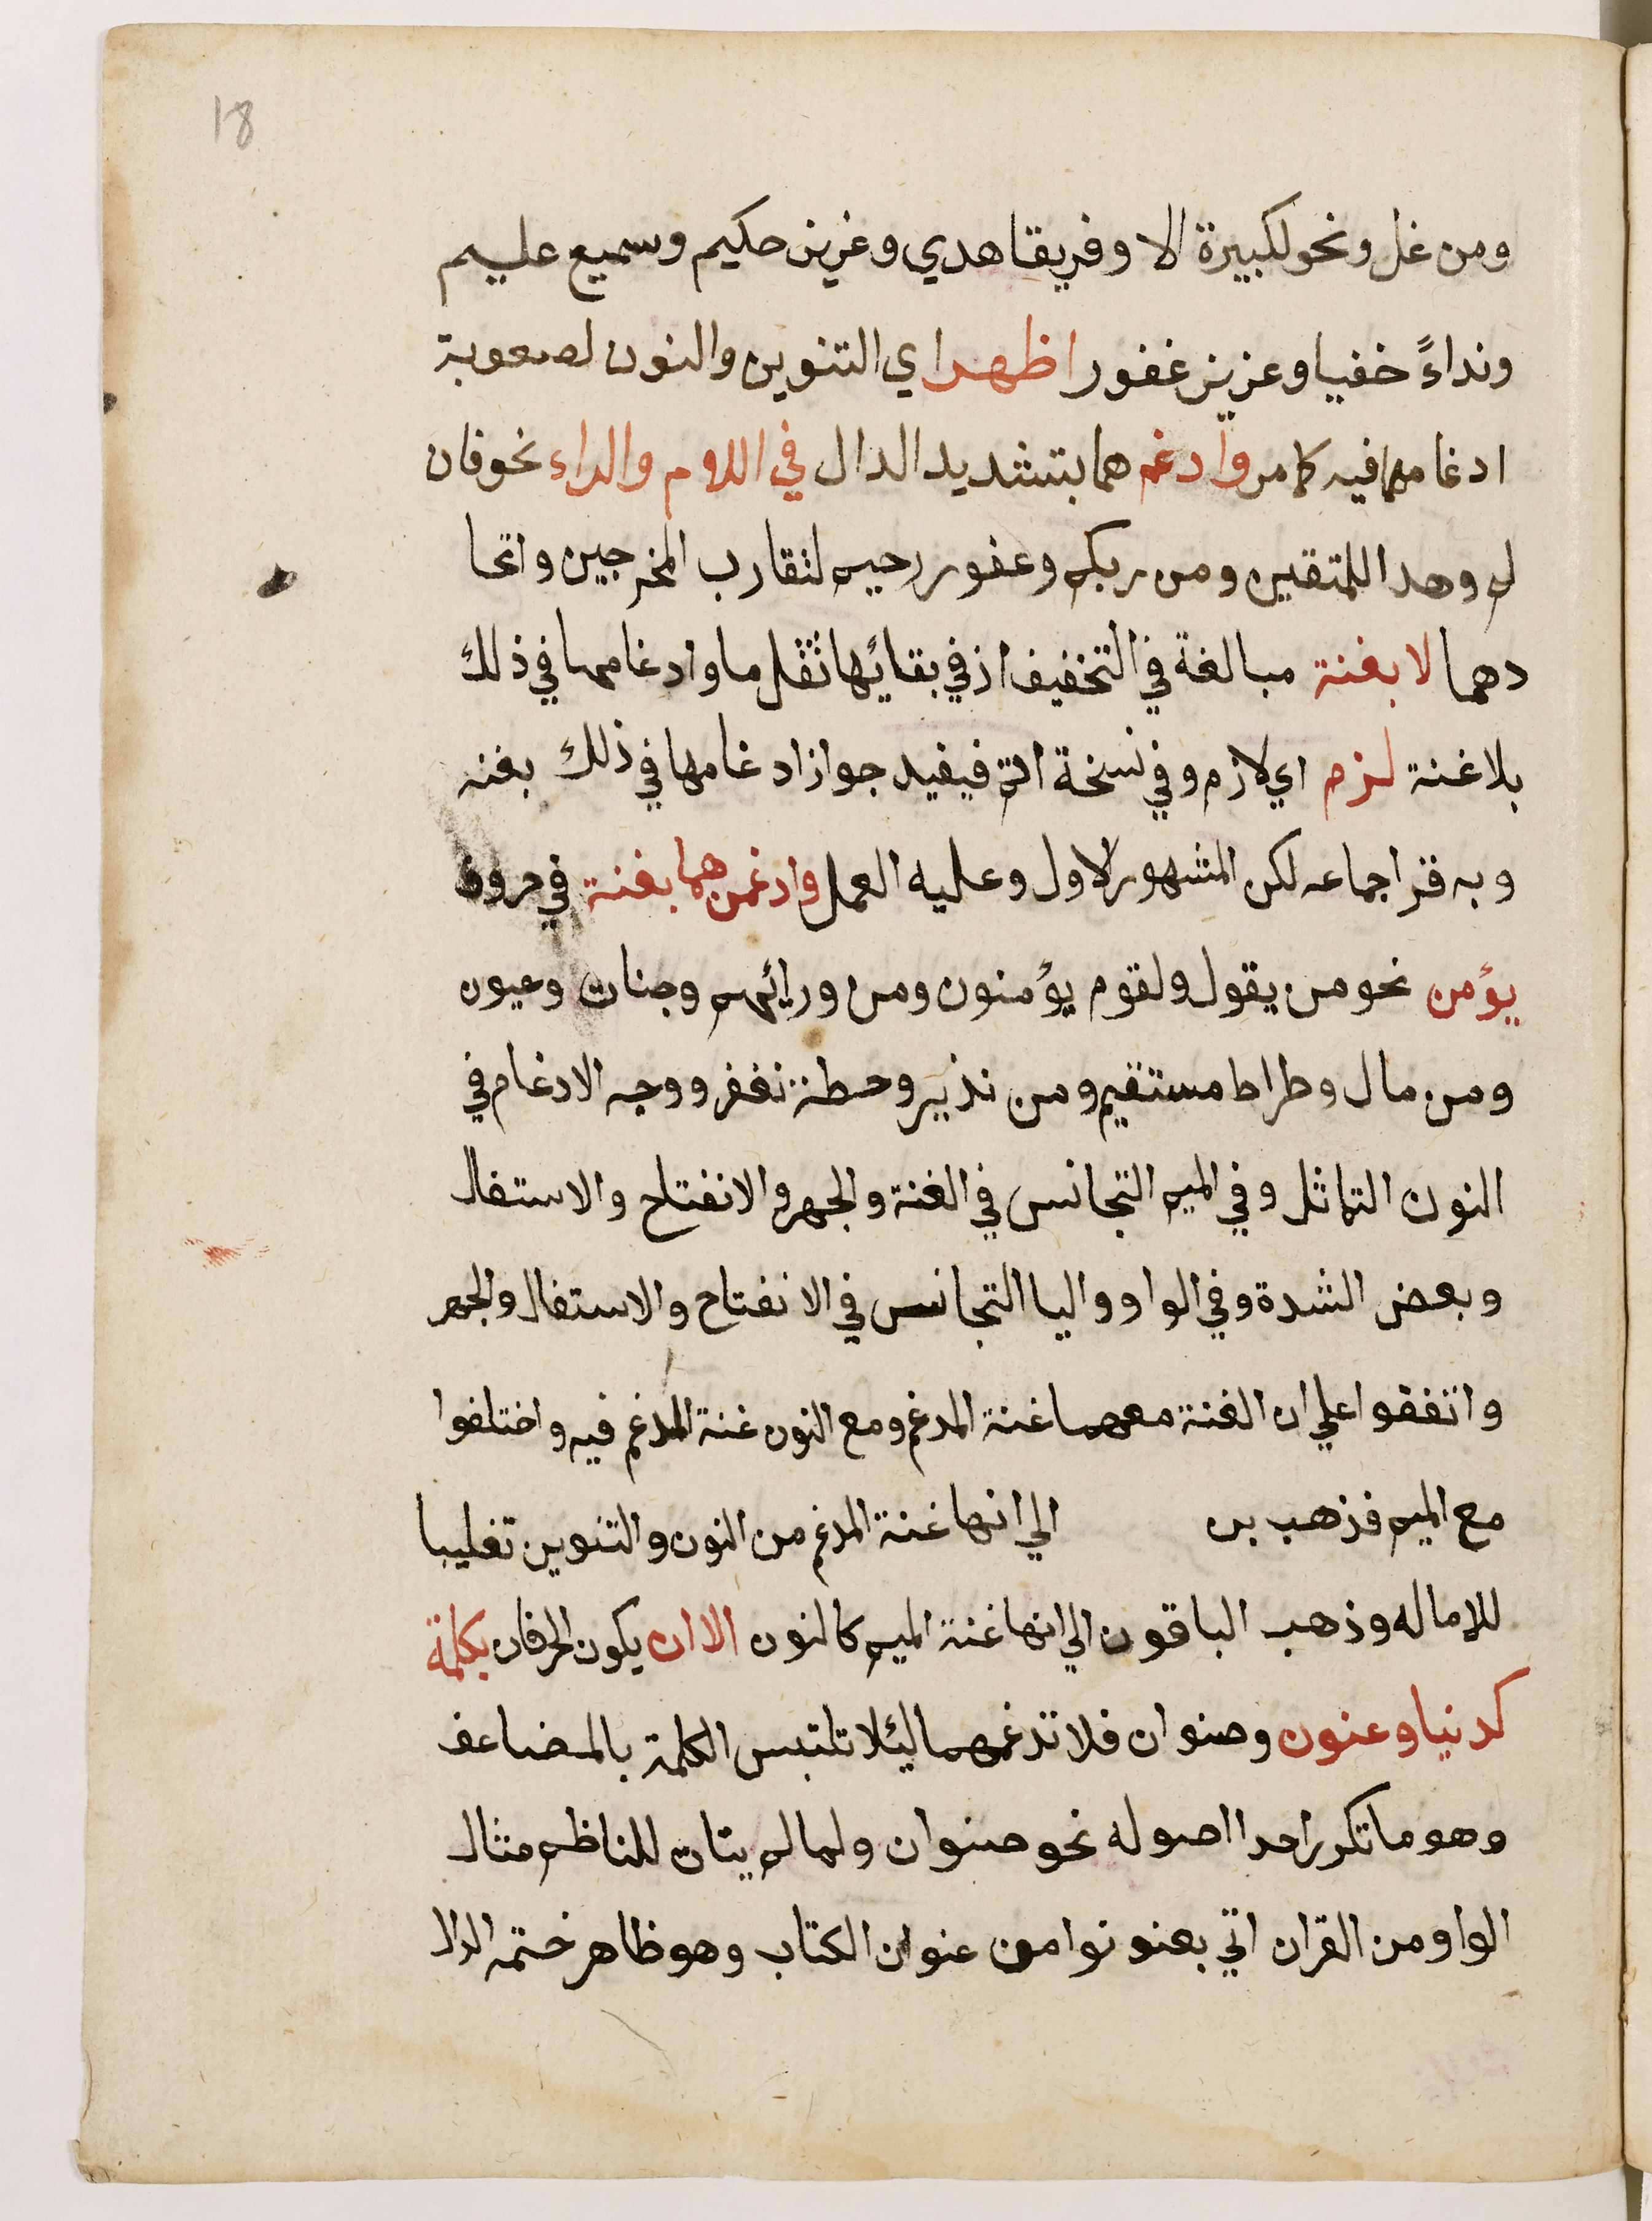 18
ومن غل ونحو لكبيرة الا وفريقا هدي وغزيز حكيم وسميع عليم
ونداءً خفيا وعزيز غفور اظهر اي التنوين والنون لصعوبة
ادغامهما فيه كما مر وادغم هما بتشديد الدال في اللام والراء نحو فان
لم وهدا للمتقين ومن ربكم وغفور رحيم لتقارب المخرجين واتحا
دهما لا بغنة مبالغة في التخفيف اذ في بقائها ثقل ما وادغامهما في ذلك
بلا غنة لزم اي لازم وفي نسخة اتم فيفيد جواز ادغامها في ذلك بغنه
وبه قرا جماعه لكن المشهور الاول وعليه العمل وادغمن هما بغنة في حروف
يؤمن نحو من يقول ولقوم يؤمنون ومن ورائهم وجنات وعيون
ومن مال وطراط مستقيم ومن نذير وحطة نغفر ووجه الادغام في
النون التماثل وفي الميم التجانس في الغنة والجهر والانفتاح والاستفال
وبعض الشدة وفي الواو واليا التجانس في الانفتاح والاستفال والجهر
واتفقوا علي ان الغنة معهما غنة المدغم ومع النون غنة المدغم فيه واختلفوا
مع الميم فذهب بن الي انها غنة المدغم من النون والتنوين تغليبا
للاماله وذهب الباقون الي انها غنة الميم كالنون الا ان يكون الحرفان بكلمة
كدنيا وعنون وصنوان فلا تدغمهما ليئلا تلتبس الكلمة بالمضاعف
وهو ما تكرر احدا اصوله نحو صنوان ولما لم يتات للناظم مثال
الواو من القران اتي بعنونوا من عنوان الكتاب وهو ظاهر ختمه الدال